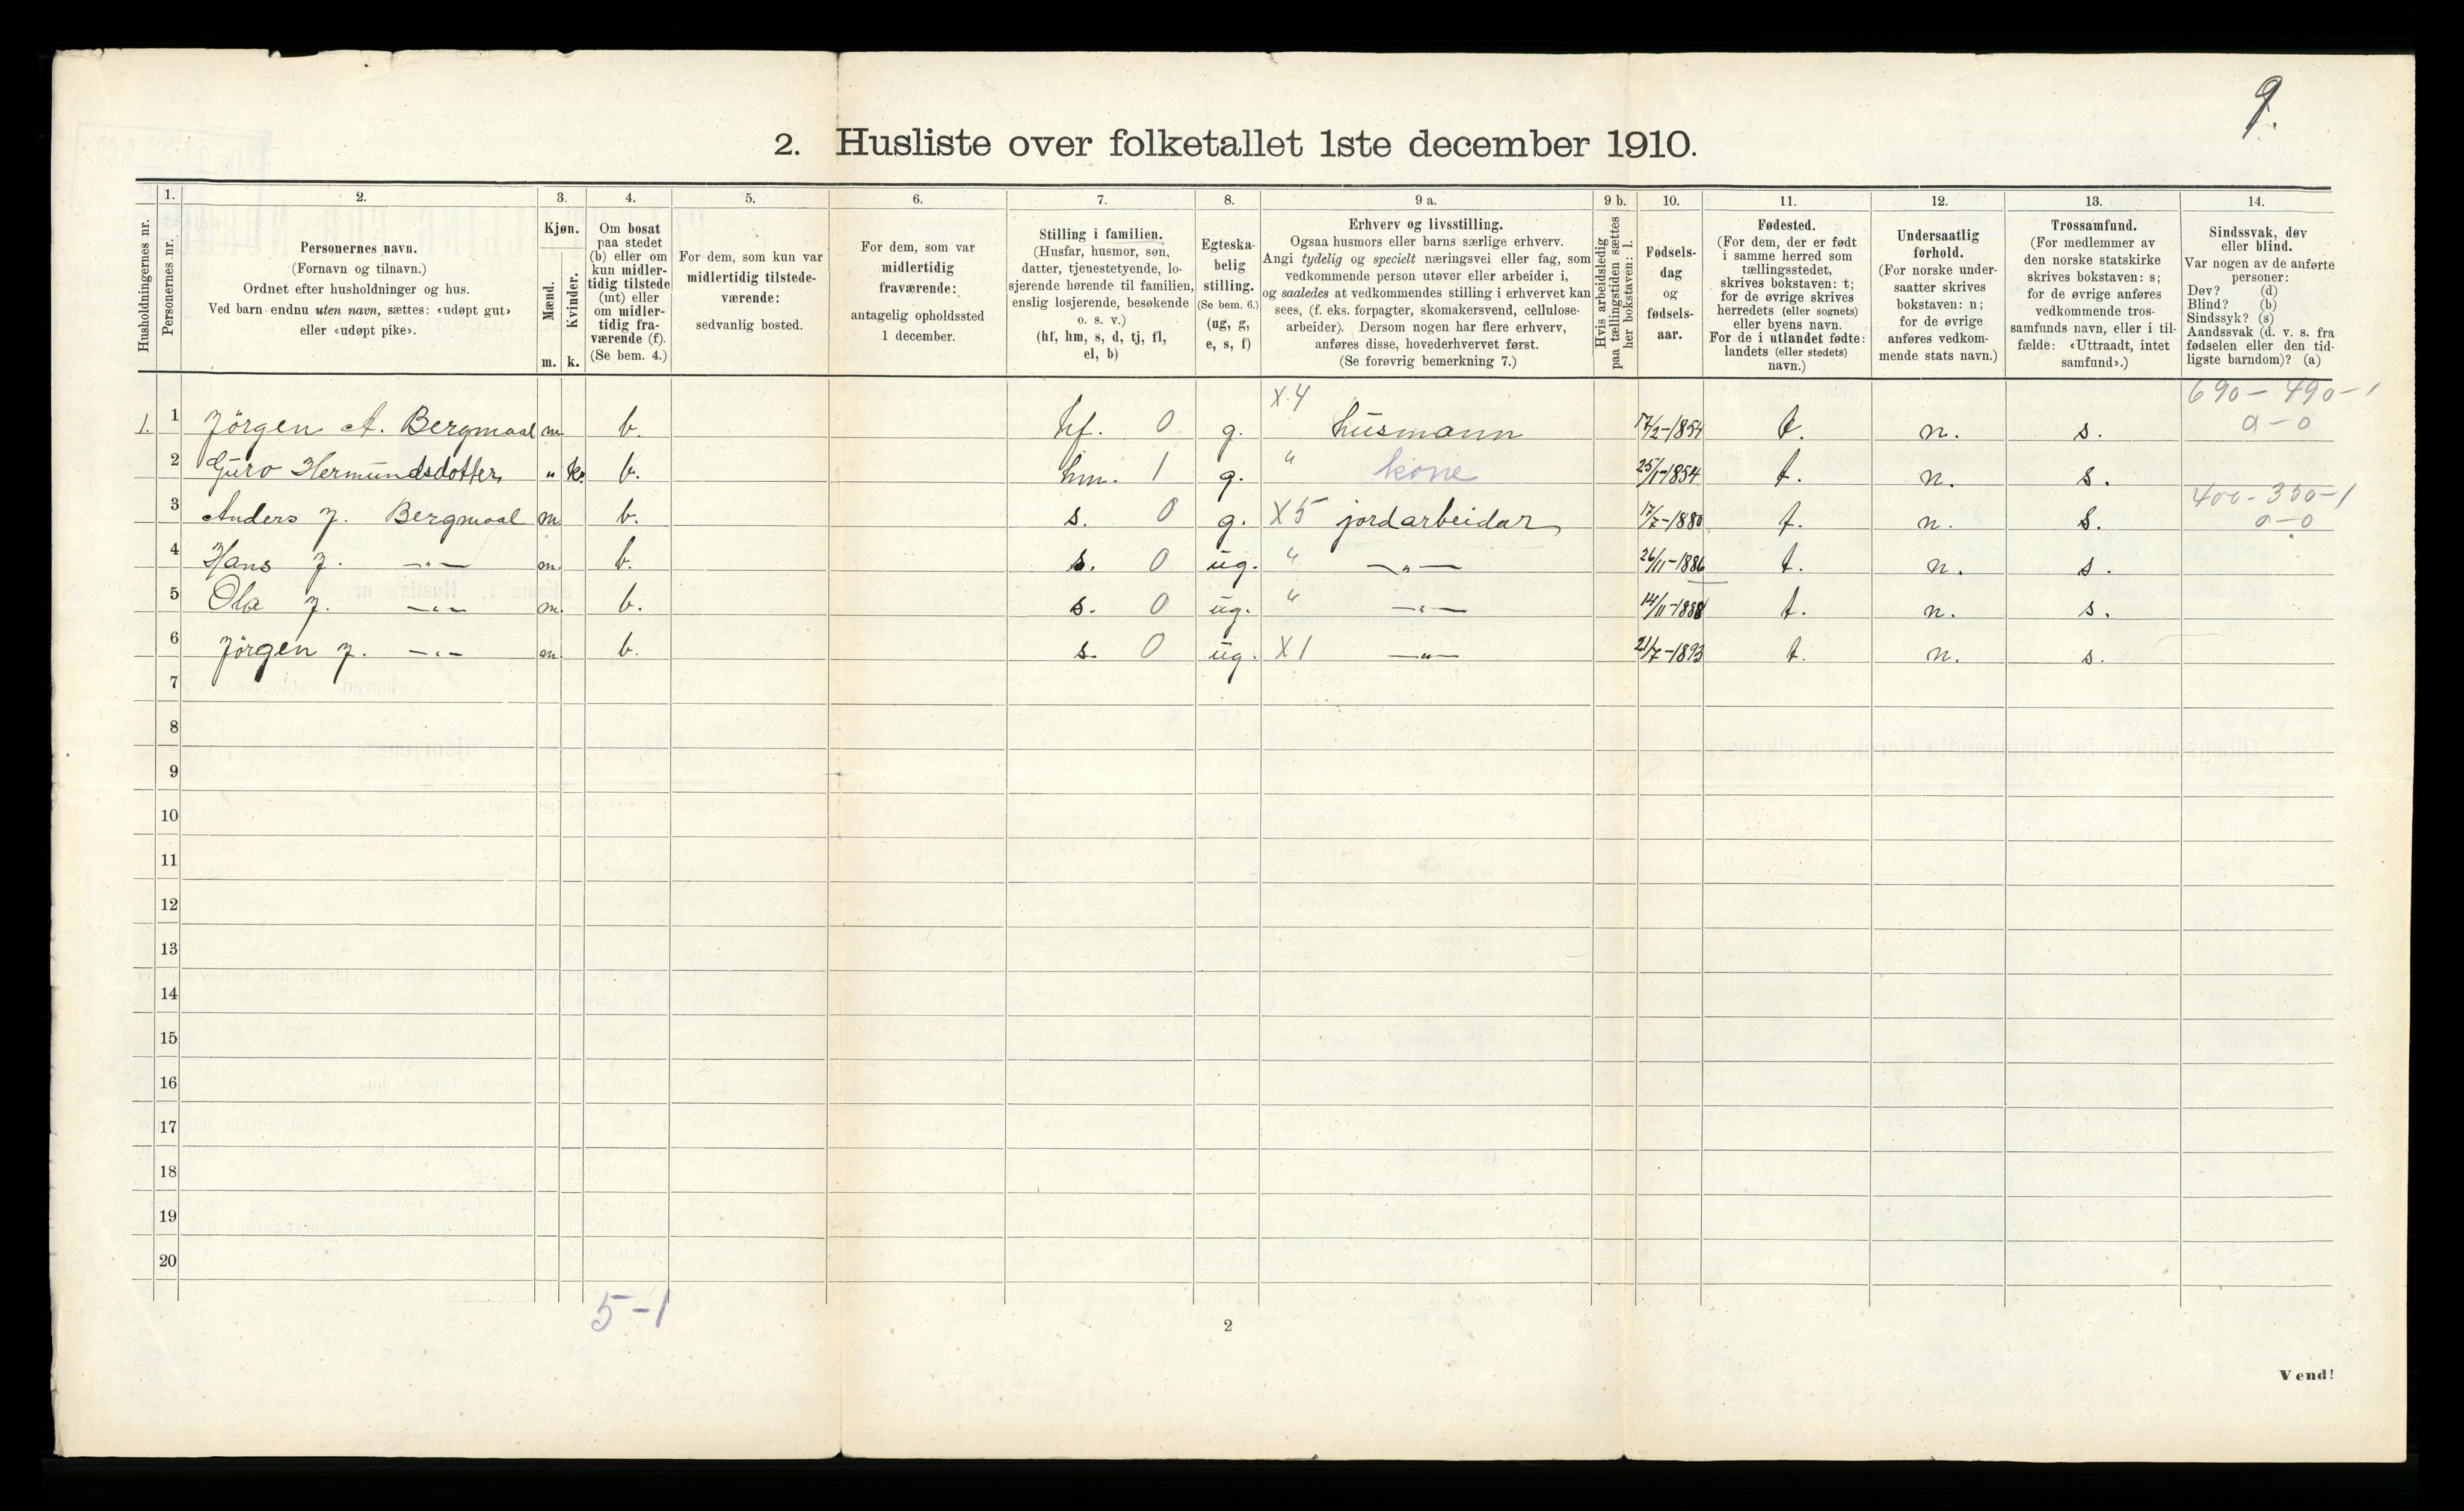 9.
2. Husliste over folketallet 1ste december 1910.
Husholdningernes nr.
1.
Personernes nr.
2.
Personernes navn.
(Fornavn og tilnavn.)
Ordnet efter husholdninger og hus.
Ved barn endnu uten navn, sættes: «udøpt gut»
eller «udøpt pike».
3.
Kjøn.
Mænd.
Kvinder.
m. k.
4.
Om bosat
paa stedet
(b) eller om
kun midler-
tidig tilstede
(mt) eller
om midler-
tidig fra-
værende (f).
(Se bem. 4.)
5.
For dem, som kun var
midlertidig tilstede-
værende:
sedvanlig bosted.
6.
For dem, som var
midlertidig
fraværende:
antagelig opholdssted
1 december.
7.
Stilling i familien.
(Husfar, husmor, søn,
datter, tjenestetyende, lo-
sjerende hørende til familien,
enslig losjerende, besøkende
o. s. v.)
(hf, hm, s, d, tj, fl,
el, b)
8.
Egteska-
belig
stilling.
(Se bem. 6.)
(ug, g,
e, s, f)
9 a.
Erhverv og livsstilling.
Ogsaa husmors eller barns særlige erhverv.
Angi tydelig og specielt næringsvei eller fag, som
vedkommende person utøver eller arbeider i,
og saaledes at vedkommendes stilling i erhvervet kan
sees, (f. eks. forpagter, skomakersvend, cellulose-
arbeider). Dersom nogen har flere erhverv,
anføres disse, hovederhvervet først.
(Se forøvrig bemerkning 7.)
9 b.
Hvis arbeidsledig
paa tællingstiden sættes
her bokstaven: l.
10.
Fødsels-
dag
og
fødsels-
aar.
11.
Fødested.
(For dem, der er født
i samme herred som
tællingsstedet,
skrives bokstaven: t;
for de øvrige skrives
herredets (eller sognets)
eller byens navn.
For de i utlandet fødte:
landets (eller stedets)
navn.)
12.
Undersaatlig
forhold.
(For norske under-
saatter skrives
bokstaven: n;
for de øvrige
anføres vedkom-
mende stats navn.)
13.
Trossamfund.
(For medlemmer av
den norske statskirke
skrives bokstaven: s;
for de øvrige anføres
vedkommende tros-
samfunds navn, eller i til-
fælde: «Uttraadt, intet
samfund».)
14.
Sindssvak, døv
eller blind.
Var nogen av de anførte
personer:
Døv? (d)
Blind? (b)
Sindssyk? (s)
Aandssvak (d. v. s. fra
fødselen eller den tid-
ligste barndom)? (a)
X 4 690 - 490 - 1
1. 1 Jörgen A. Bergmaal m. b. hf. 0 g. husmann 17/2-1854 t. n. s. a - 0
2 Guro Hermundsdotter „ k. b. hm. 1 g. " kone 25/1-1854 t. n. s.
400 - 350 - 1
3 Anders J. Bergmaal m b. s. 0 g. X 5 jordarbeidar 17/7-1880 t. n. s. 0 - 0
4 Hans J. —"— m. b. s. 0 ug. " —"— 26/11-1886 t. n. s.
5 Ola J. —"— m. b. s. 0 ug. " —"— 14/11-1888 t. n. s.
6 Jörgen J. —"— m. b. s. 0 ug. X 1 —"— 21/7-1893 t. n. s.
7
8
9
10
11
12
13
14
15
16
17
18
19
20
5-1
2
Vend!